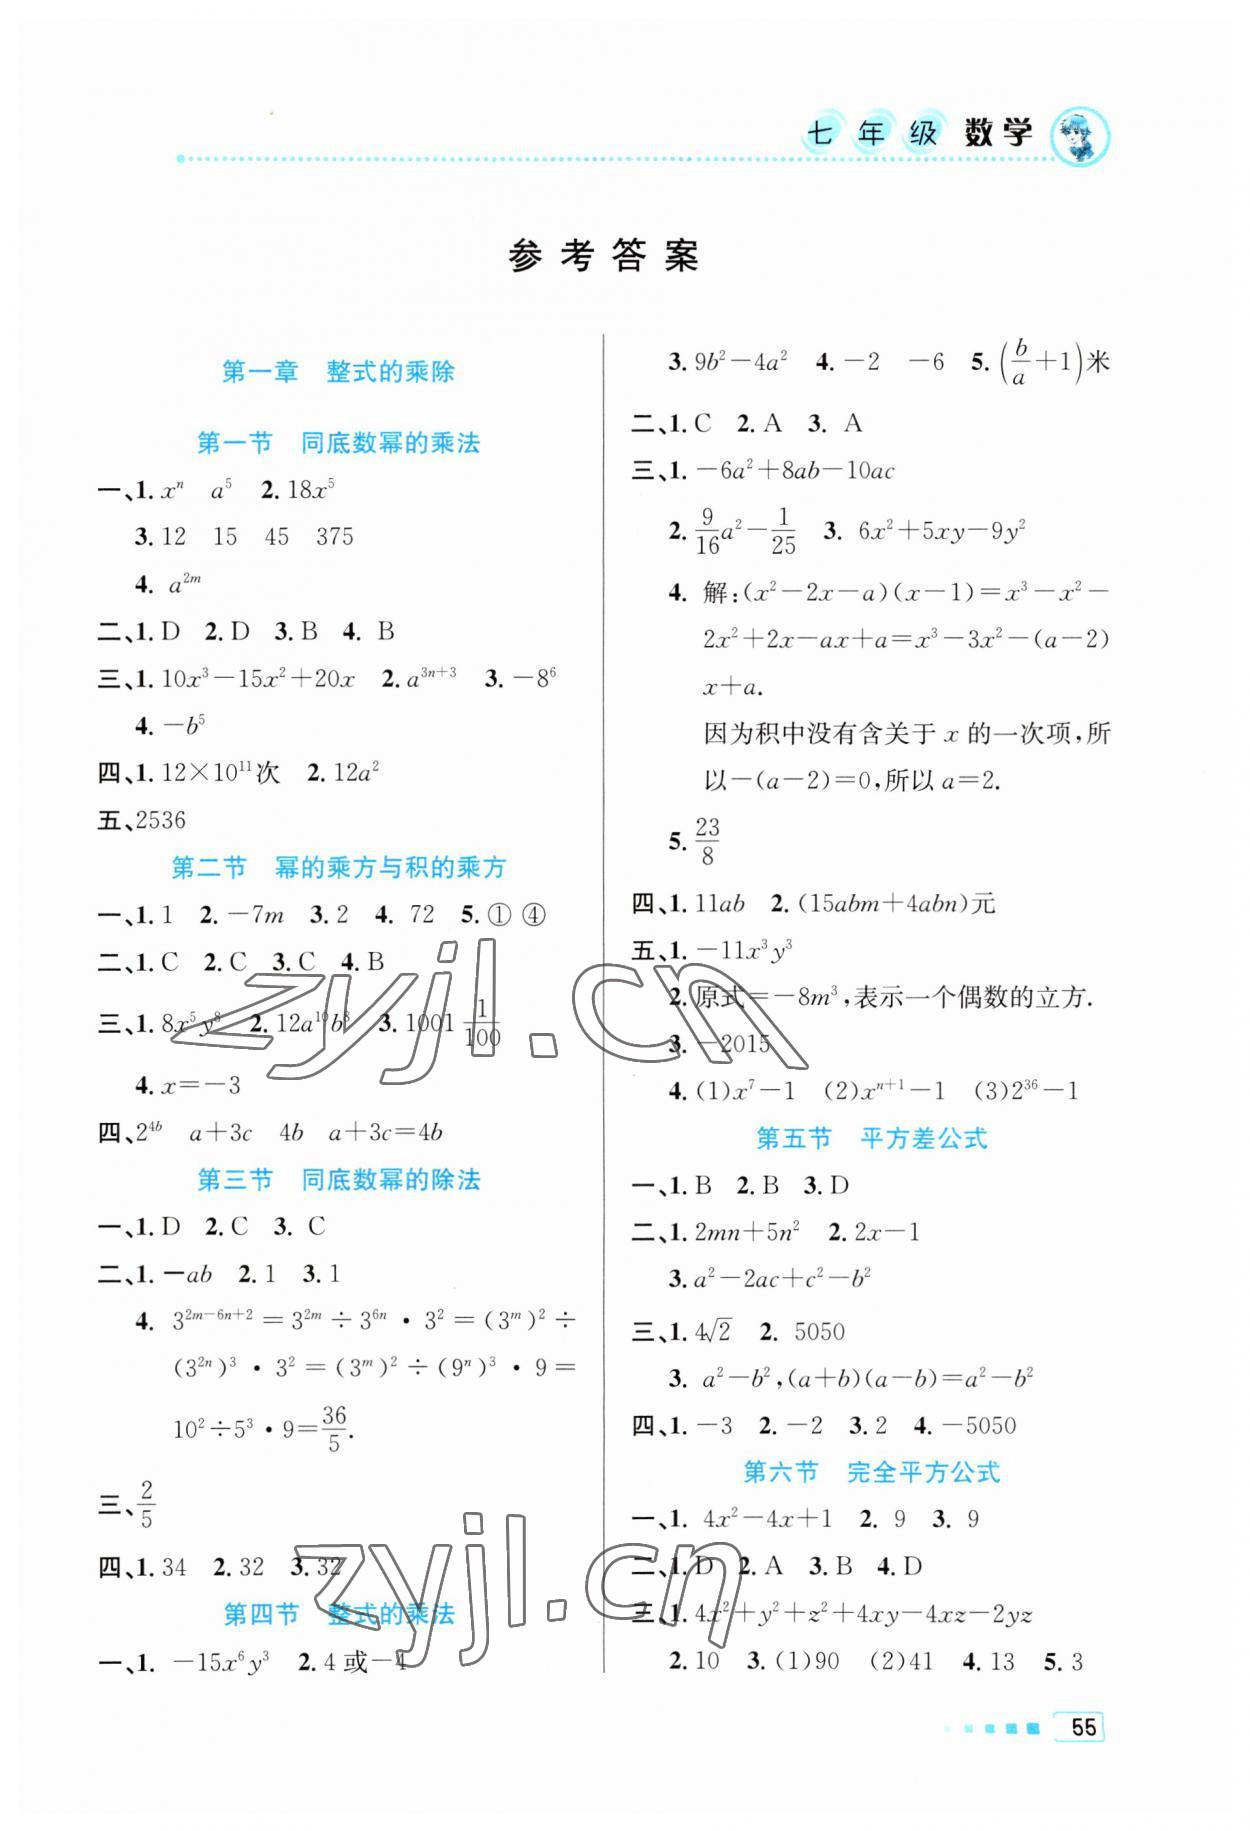 七年级 数学
参考答案
第一章 整式的乘除
第一节 同底数幂的乘法
一、1. xⁿ a⁵ 2. 18x⁵
3. 12 15 45 375
4. a²ᵐ
二、1. D 2. D 3. B 4. B
三、1. 10x³－15x²＋20x 2. a³ⁿ⁺³ 3. －8⁶
4. －b⁵
四、1. 12×10¹¹次 2. 12a²
五、2536
第二节 幂的乘方与积的乘方
一、1. 1 2. －7m 3. 2 4. 72 5. ① ④
二、1. C 2. C 3. C 4. B
三、1. 8x⁵y⁸ 2. 12a¹⁰b⁸ 3. 1001 1/100
4. x＝－3
四、2⁴ᵇ a＋3c 4b a＋3c＝4b
第三节 同底数幂的除法
一、1. D 2. C 3. C
二、1. －ab 2. 1 3. 1
4. 3²ᵐ⁻⁶ⁿ⁺²＝3²ᵐ÷3⁶ⁿ·3²＝(3ᵐ)²÷
(3²ⁿ)³·3²＝(3ᵐ)²÷(9ⁿ)³·9＝
10²÷5³·9＝36/5.
三、2/5
四、1. 34 2. 32 3. 32
第四节 整式的乘法
一、1. －15x⁶y³ 2. 4或－4
3. 9b²－4a² 4. －2 －6 5. (b/a＋1)米
二、1. C 2. A 3. A
三、1. －6a²＋8ab－10ac
2. 9/16a²－1/25 3. 6x²＋5xy－9y²
4. 解：(x²－2x－a)(x－1)＝x³－x²－
2x²＋2x－ax＋a＝x³－3x²－(a－2)
x＋a.
因为积中没有含关于 x 的一次项，所
以－(a－2)＝0，所以 a＝2.
5. 23/8
四、1. 11ab 2. (15abm＋4abn)元
五、1. －11x³y³
2. 原式＝－8m³，表示一个偶数的立方.
3. －2015
4. (1)x⁷－1 (2)xⁿ⁺¹－1 (3)2³⁶－1
第五节 平方差公式
一、1. B 2. B 3. D
二、1. 2mn＋5n² 2. 2x－1
3. a²－2ac＋c²－b²
三、1. 4√2 2. 5050
3. a²－b²，(a＋b)(a－b)＝a²－b²
四、1. －3 2. －2 3. 2 4. －5050
第六节 完全平方公式
一、1. 4x²－4x＋1 2. 9 3. 9
二、1. D 2. A 3. B 4. D
三、1. 4x²＋y²＋z²＋4xy－4xz－2yz
2. 10 3. (1)90 (2)41 4. 13 5. 3
55
zyjl.cn
zyjl.cn